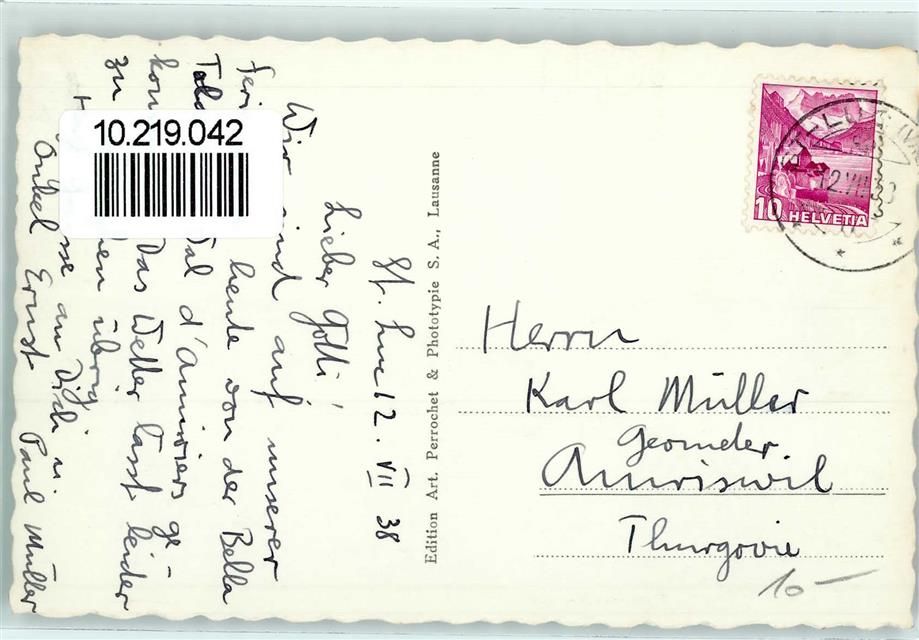 St. Luc 12. VII 38
Lieber Götti!
Wir sind auf unserer
Feri heute von der Bella
Tola Val d'Anniviers ge-
kom Das Wetter lässt leider
zu übrig
sse an Dich u.
Onkel Ernst Paul Müller
10.219.042
Edition Art. Perrochet & Phototypie S. A., Lausanne
10 HELVETIA
12.VII.38
Herrn
Karl Müller
Geometer
Amriswil
Thurgovie
10 —